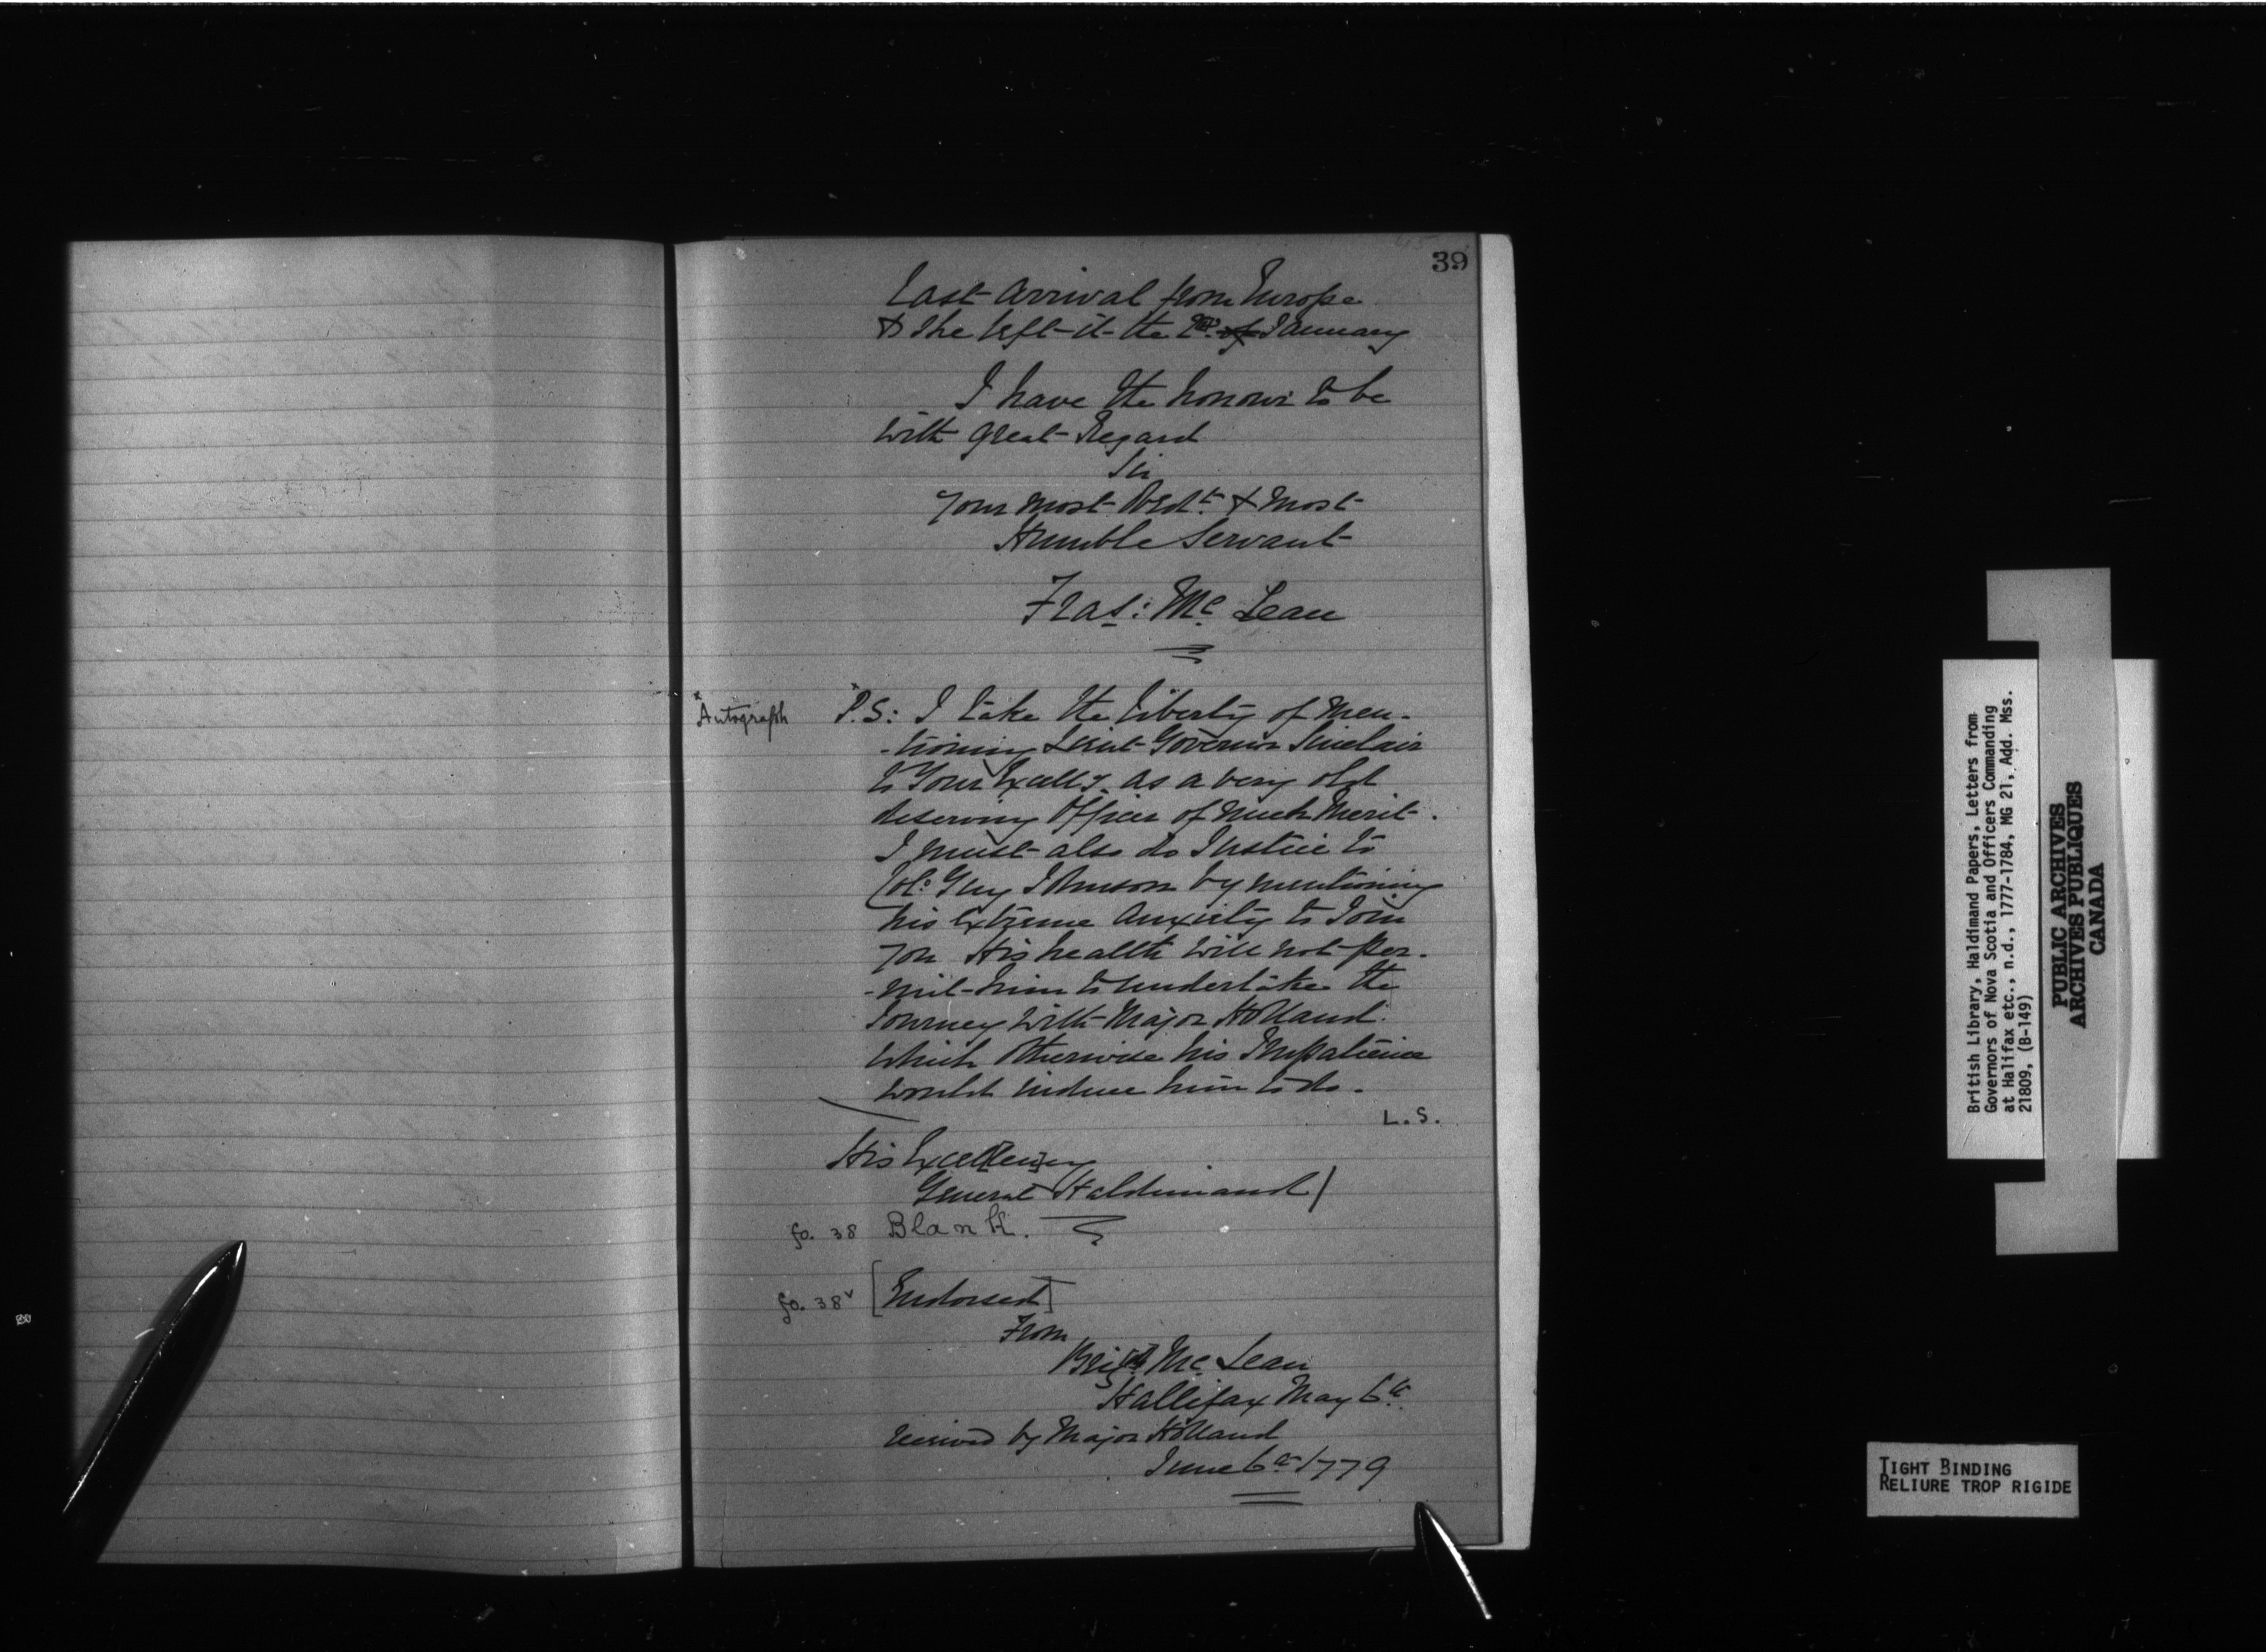 39
Last Arrival from Europe
& She left it the 2d. of January
I have the honour to be
with great Regard
Sir
Your most Obdt. & most
Humble Servant
Fras: Mc Lean
*Autograph
*P.S: I take the Liberty of Men-
-tioning Lieut Governor Sinclair
to Your Excelly. as a very old
deserving Officer of much Merit.
I must also do Justice to
Colo: Guy Johnson by mentioning
his extreme Anxiety to Join
you His health will not per-
-mit him to undertake the
Journey with Major Holland
which Otherwise his Impatience
would induce him to do.
L.S.
His Excellency
General Haldimand
fo. 38 Blank.
fo. 38v [Endorsed]
From
Brigr. Mc Lean
Hallifax May 6th.
received by Major Holland
June 6th 1779
British Library, Haldimand Papers, Letters from
Governors of Nova Scotia and Officers Commanding
at Halifax etc., n.d., 1777-1784, MG 21, Add. Mss.
21809, (B-149)
PUBLIC ARCHIVES
ARCHIVES PUBLIQUES
CANADA
TIGHT BINDING
RELIURE TROP RIGIDE